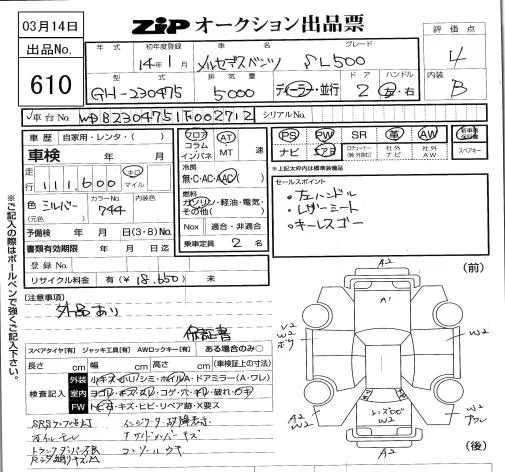 03月14日
ZIP オークション出品票
出品No.
610
年式 初年度登録 車名 グレード
14年1月 メルセデスベンツ SL500
型式 排気量 ドア ハンドル
GH-230475 5000 ディーラー・並行 2 左・右
評価点
4
内装
B
車台No. WDB2304751F002712 シリアルNo.
車歴 自家用・レンタ・( )
車検 年 月
走行 111,600 キロ マイル
色 シルバー (元色) カラーNo. 744 内装色
予備検 年 月 日(3・8)No.
書類有効期限 年 月 日迄
登録No.
リサイクル料金 有(¥18,650) 未
フロア コラム インパネ AT MT 速
冷房
無・C・AC・AAC( )
燃料
ガソリン・軽油・電気・その他( )
Nox 適合・非適合
乗車定員 2 名
PS PW SR 革 AW 新車時保証書
ナビ エアB 社外ナビ 社外AW スペアキー
※上記太枠内は標準装備品
セールスポイント
・左ハンドル
・レザーシート
・キーレスゴー
※ご記入の際はボールペンで強くご記入下さい。
(注意事項)
外品あり
保証書
スペアタイヤ[有] ジャッキ工具[有] AWロックキー[有] ある場合のみ○
長さ cm 幅 cm 高さ cm (車検証上の寸法)
検査記入
外装 小キズ・小U/シミ・ホイルA・ドアミラー(A・ワレ)
室内 ヨゴレ・キズ・スレ・コゲ・穴・キレ・破れ・ウキ
FW トビ石・キズ・ヒビ・リペア跡・X要ス
オイルモレ
コンソールウキ
(前)
A2
A1
W2
W2
A2
W2
A2
(後)